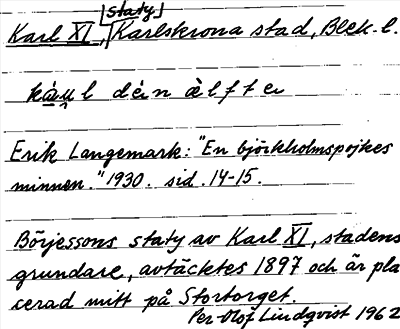 staty
Karl XI, Karlskrona stad, Blek. l.
kạ̀u̯l dén ὲlfte
Erik Langemark: "En björkholmspojkes
minnen." 1930. sid. 14-15.
Börjessons staty av Karl XI, stadens
grundare, avtäcktes 1897 och är pla
cerad mitt på Stortorget.
Per-Olof Lindqvist 1962